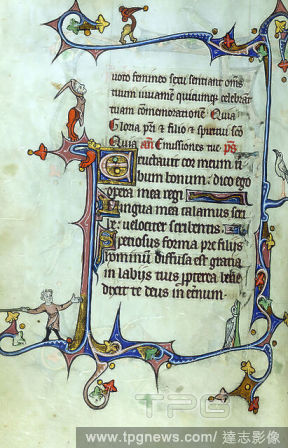 uoto femineo sexu sentiant om̄s
tuum iuuamē quicumqꝫ celebrāt
tuam cōmemorationem. Quia
Gloria pr̄i ⁊ filio ⁊ spiritui sc̄o
Quia añ Emissiones tue. ps̄.
Eructauit cor meum ū
bum bonum: dico ego
opera mea regi
Lingua mea calamus scri
be: uelociter scribentis
Speciosus forma pre filijs
hominū diffusa est gratia
in labijs tuis ꝓpterea bn̄e
dixit te deus in et̄num.
TPG
www.tpgnews.com/ 達志影像